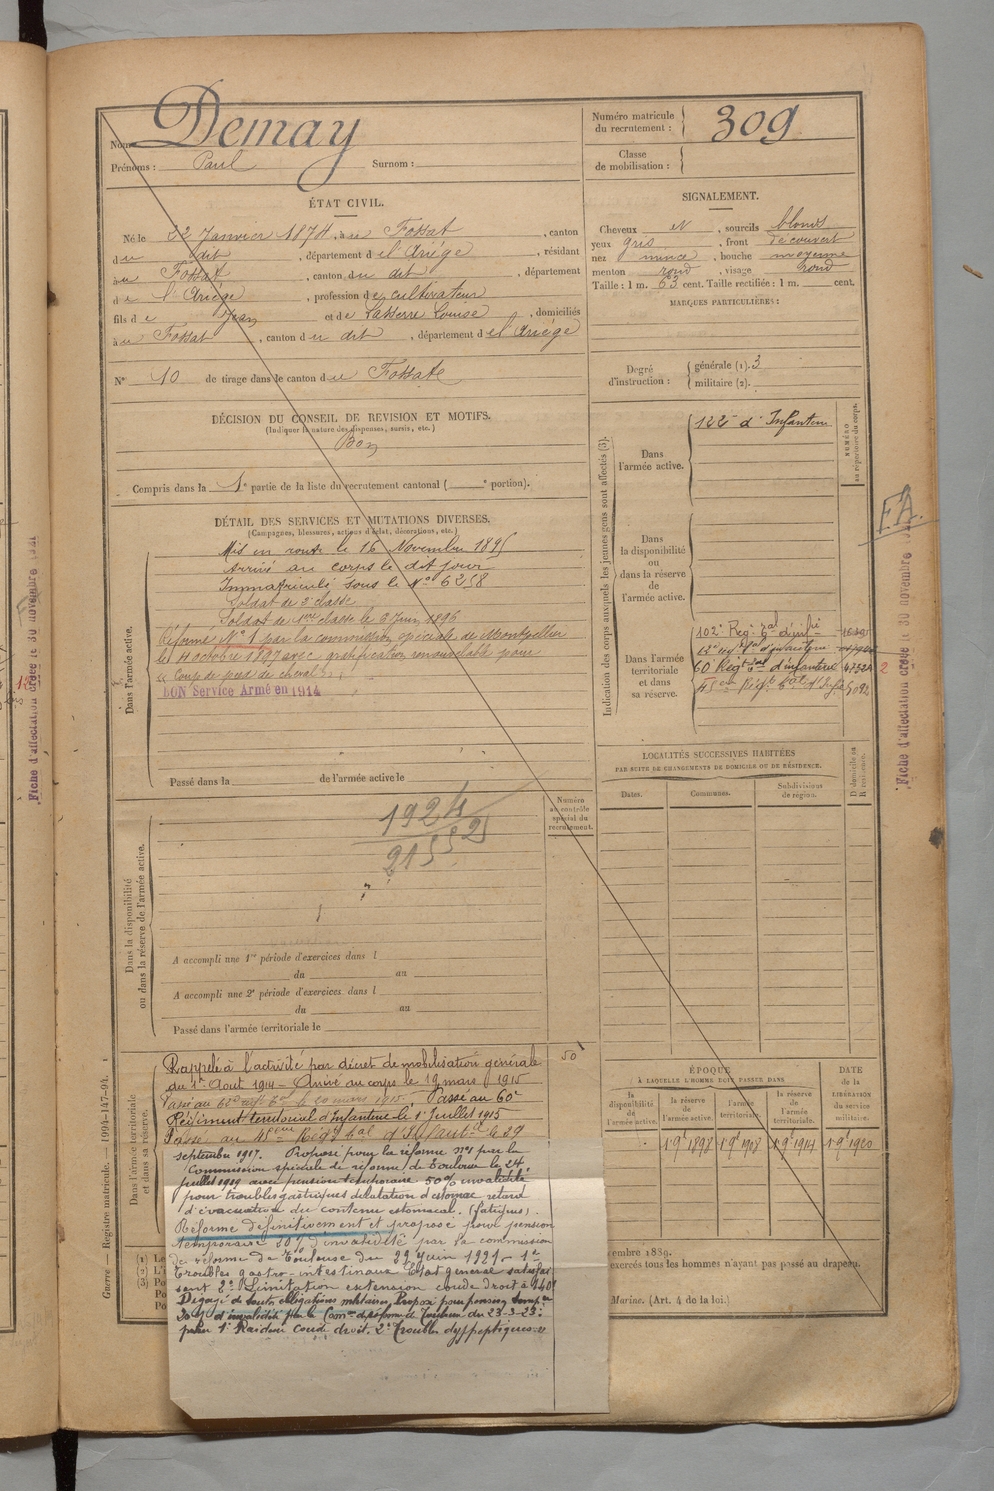 Nom Demay
Prénoms : Paul Surnom :
Numéro matricule du recrutement : 309
Classe de mobilisation :
ÉTAT CIVIL.
Né le 22 Janvier 1874, à u Fossat, canton
du dit, département d el'Ariége, résidant
au Fossat, canton du dit, département
de l'Ariége, profession de cultivateur
fils de Jean et de Lasserre Louise, domiciliés
à u Fossat, canton du dit, département d el'Ariége
N° 10 de tirage dans le canton du Fossat
DÉCISION DU CONSEIL DE REVISION ET MOTIFS.
(Indiquer la nature des dispenses, sursis, etc.)
Bon
Compris dans la 1e partie de la liste du recrutement cantonal ( e portion).
SIGNALEMENT.
Cheveux et, sourcils blonds
yeux gris, front découvert
nez mince, bouche moyenne
menton rond, visage rond
Taille : 1 m. 63 cent. Taille rectifiée : 1 m. cent.
MARQUES PARTICULIÈRES :
Degré d'instruction : générale (1). 3
militaire (2).
DÉTAIL DES SERVICES ET MUTATIONS DIVERSES.
(Campagnes, blessures, actions d'éclat, décorations, etc.)
Dans l'armée active.
Mis en route le 16 Novembre 1895
Arrivé au corps le dit jour
Immatriculé sous le N° 6258
Soldat de 2e classe
Soldat de 1ère classe le 2 Juin 1896
Réformé N° 1 par la commission spéciale de Montpellier
le 4 octobre 1897 avec gratification renouvelable pour
"Coup de pied de cheval"
BON Service Armé en 1914
Passé dans la de l'armée active le
Indication des corps auxquels les jeunes gens sont affectés (3).
NUMÉRO au répertoire du corps.
Dans l'armée active.
122e d'Infanterie
Dans la disponibilité ou dans la réserve de l'armée active.
Dans l'armée territoriale et dans sa réserve.
102e Régt tal d'infie
60 Régt tal d'infanterie
45ème Régt tal d'Infie
2
EA.
Fiche d'affectation créée le 30 novembre 1921
LOCALITÉS SUCCESSIVES HABITÉES
PAR SUITE DE CHANGEMENTS DE DOMICILE OU DE RÉSIDENCE.
Dates. Communes. Subdivisions de région. D domicile ou R résidence.
Dans la disponibilité ou dans la réserve de l'armée active.
Numéro au contrôle spécial du recrutement.
1924
21552
A accompli une 1re période d'exercices dans l
du au
A accompli une 2e période d'exercices dans l
du au
Passé dans l'armée territoriale le
Dans l'armée territoriale et dans sa réserve.
50
Rappelé à l'activité par décret de mobilisation générale
du 1er Aout 1914 - Arrivé au corps le 19 mars 1915
Passé au 60e
Régiment territorial d'Infanterie le 1er Juillet 1915
Passé au 45ème Régt tal d'Infanterie le 29
septembre 1917. Proposé pour la réforme n°1 par la
Commission spéciale de réforme de Toulouse le 24
juillet 1919 avec pension temporaire 50% invalidité
pour troubles gastriques dilatation d'estomac retard
d'évacuation du contenu estomacal.
Réformé définitivement et proposé pour pension
temporaire 30% d'invalidité par la commission
de réforme de Toulouse du 22 Juin 1921 - 1°
troubles gastro-intestinaux Etat général satisfai-
sant 2° Limitation extension coude droit à 140°
Dégagé de toutes obligations militaires. Proposé pour pension temp.re
30% d'invalidité par la Com.on de réforme de Toulouse du 23-3-23:
pour 1° Raideur coude droit. 2° Troubles dyspeptiques
ÉPOQUE
À LAQUELLE L'HOMME DOIT PASSER DANS
la disponibilité de l'armée active. la réserve de l'armée active. l'armée territoriale. la réserve de l'armée territoriale.
DATE de la LIBÉRATION du service militaire.
1 9e 1898 1 9e 1908 1 9e 1914 1 9e 1920
(1) Le
(2) L'I
(3) Po
Po
Po
embre 1889.
exercés tous les hommes n'ayant pas passé au drapeau.
Marine. (Art. 4 de la loi.)
Guerre — Registre matricule. — 1994-147-94.